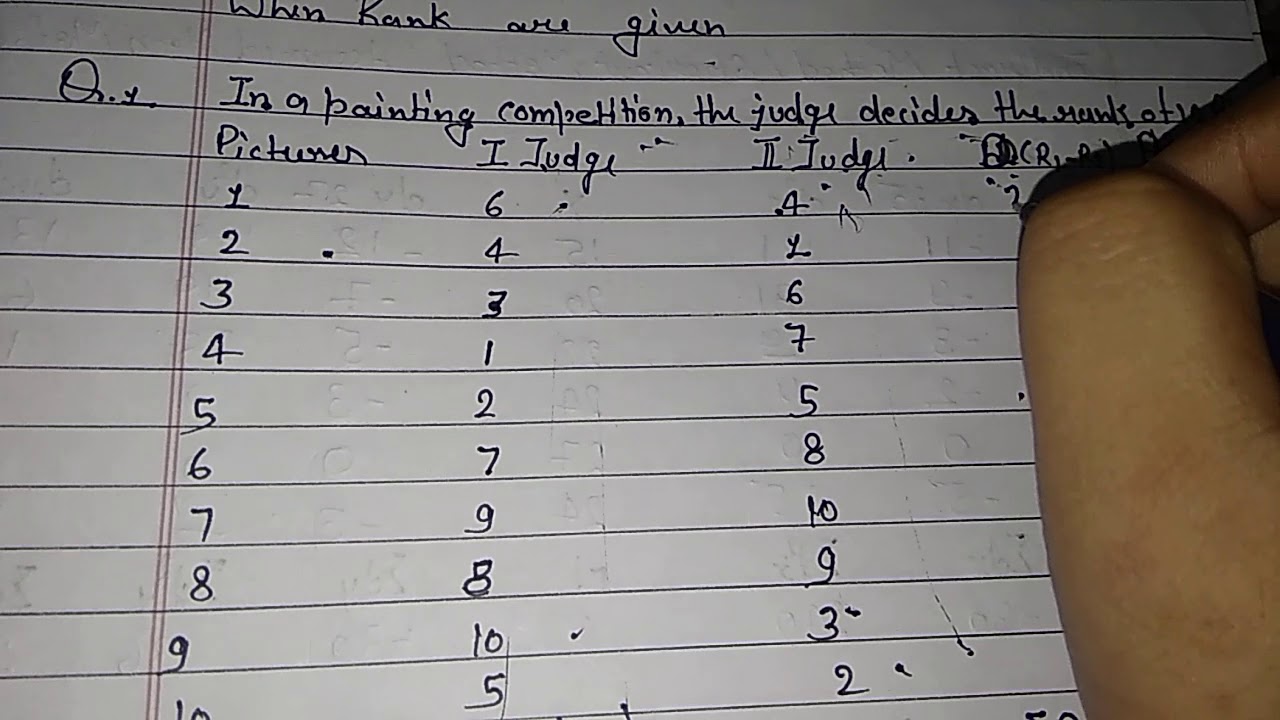 When Rank are given
Q.1. In a painting competition, the judge decides the rank of
Pictures I Judge II Judge. D(R1-R2)
1 6 4 2
2 4 1
3 3 6
4 1 7
5 2 5
6 7 8
7 9 10
8 8 9
9 10 3
10 5 2